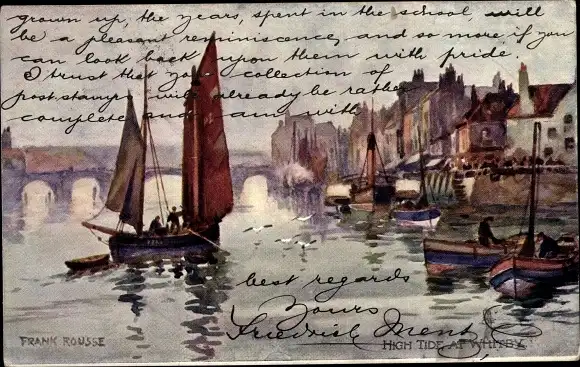 grown up, the years, spent in the school, will
be a pleasant reminiscence, and so more, if you
can look back upon them with pride.
I trust that your collection of
post stamps will already be rather
complete and I am with
best regards
Yours
Friedrich Mentz
FRANK ROUSSE
HIGH TIDE AT WHITBY.